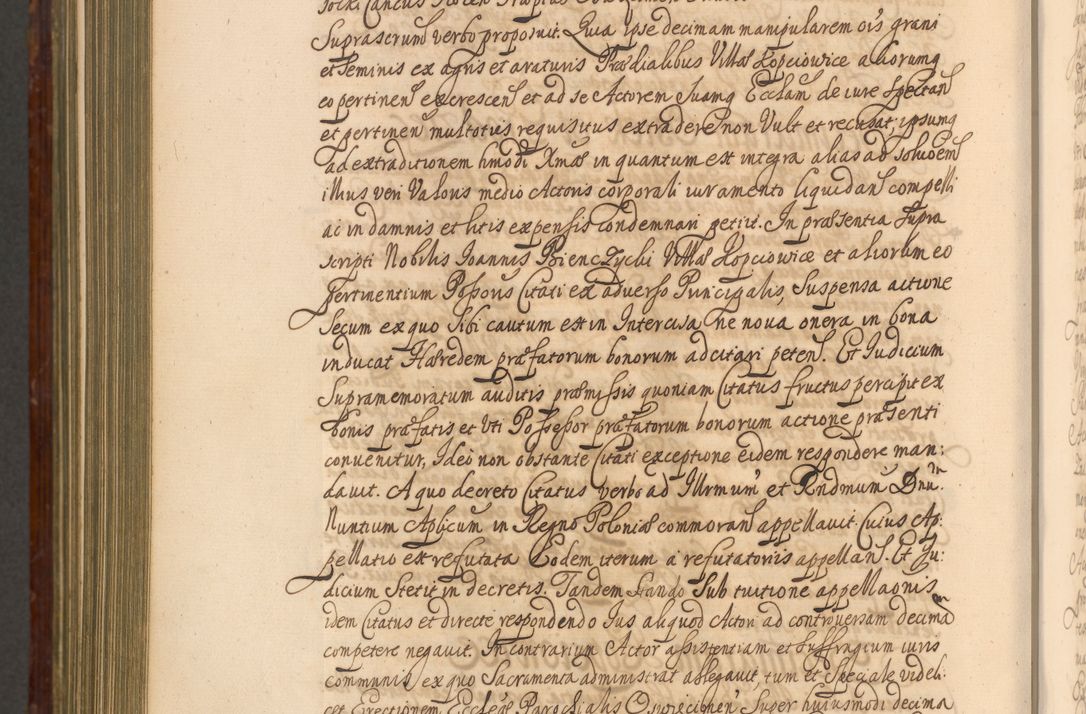 Suprascrum verbo proposuit. Quia ipse decimam manipularem ois grani
et seminis ex agris et araturis Prædialibus Villæ Łopciowice aliorumq
eo pertinen excrescen et ad se Actorem suamq Ecclam de iure spectan
et pertinen multoties requisitus extradere non Vult et recusat, ipsumq
ad extraditionem hmodi Xmæ in quantum est integra alias ad soluoem
illius veri Valoris medio Actoris corporali iuramento liquidan compelli
ac in damnis et litis expensis condemnari petiit. In præsentia supra
scripti Nobilis Joannis Bienczycki Villæ Łopciowice et aliorum eo
pertinentium Possoris Citati ex adverso Principalis, Suspensa actione
secum ex quo sibi cautum est in Intercisa ne nova onera in bona
inducat Hæredem præfatorum bonorum adcitari peten. Et Iudicium
Supramemoratum auditis præmissis quoniam Citatus fructus percipit ex
bonis præfatis et Uti Possessor præfatorum bonorum actione præsenti
convenitur, Ideo non obstante Citati exceptione eidem respondere man:
davit. A quo decreto Citatus verbo ad Illrmum et Rndmum Dnum
Nuntium Aplicum in Regno Poloniæ commoran appellavit. Cuius Ap:
pellatio est refutata Eodem iterum a refutatoriis appellan. Et Ju:
dicium stetit in decretis. Tandem stando Sub tuitione appellaonis
idem Citatus et directe respondendo Ius aliquod Actori ad controversam decimam
competere negavit. In contrarium Actor assistentiam et suffragium iuris
communis, ex quo Sacramenta administrat allegavit, tum et speciale videli:
cet Erectionem Ecclesiæ Parochialis Oswiecimen Super huiusmodi decima